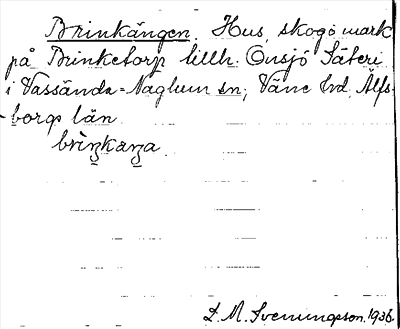 Brinkängen. Hus, skogsmark
på Brinketorp tillh. Onsjö Säteri
i Vassända-Naglum sn, Väne hd. Älfs-
borgs län.
L. M. Svenungsson. 1936.